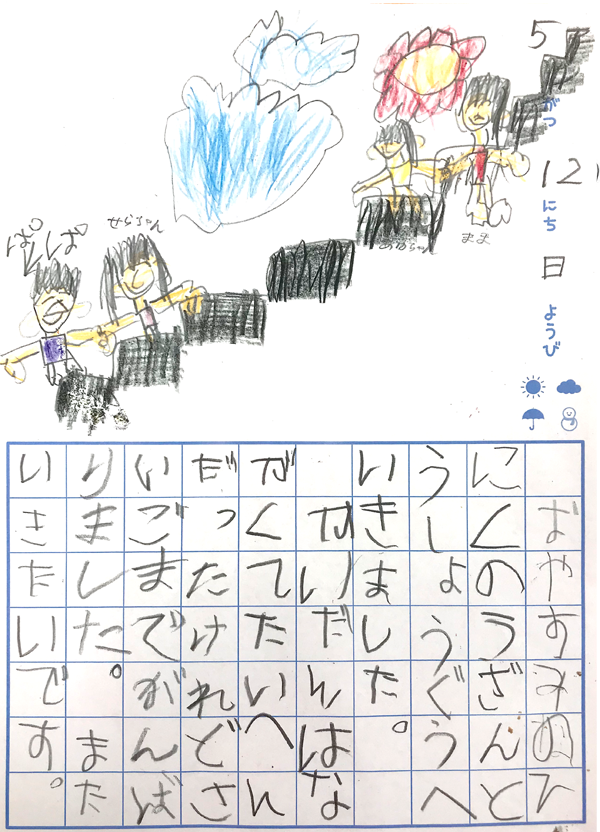 5がつ12にち日ようび
ぱぱ
せらちゃん
まま
おやすみのひ
にくのうざんと
うしょうぐうへ
いきました。
かいだんはな
がくてたいへん
だったけれどさ
いごまでがんば
りました。また
いきたいです。